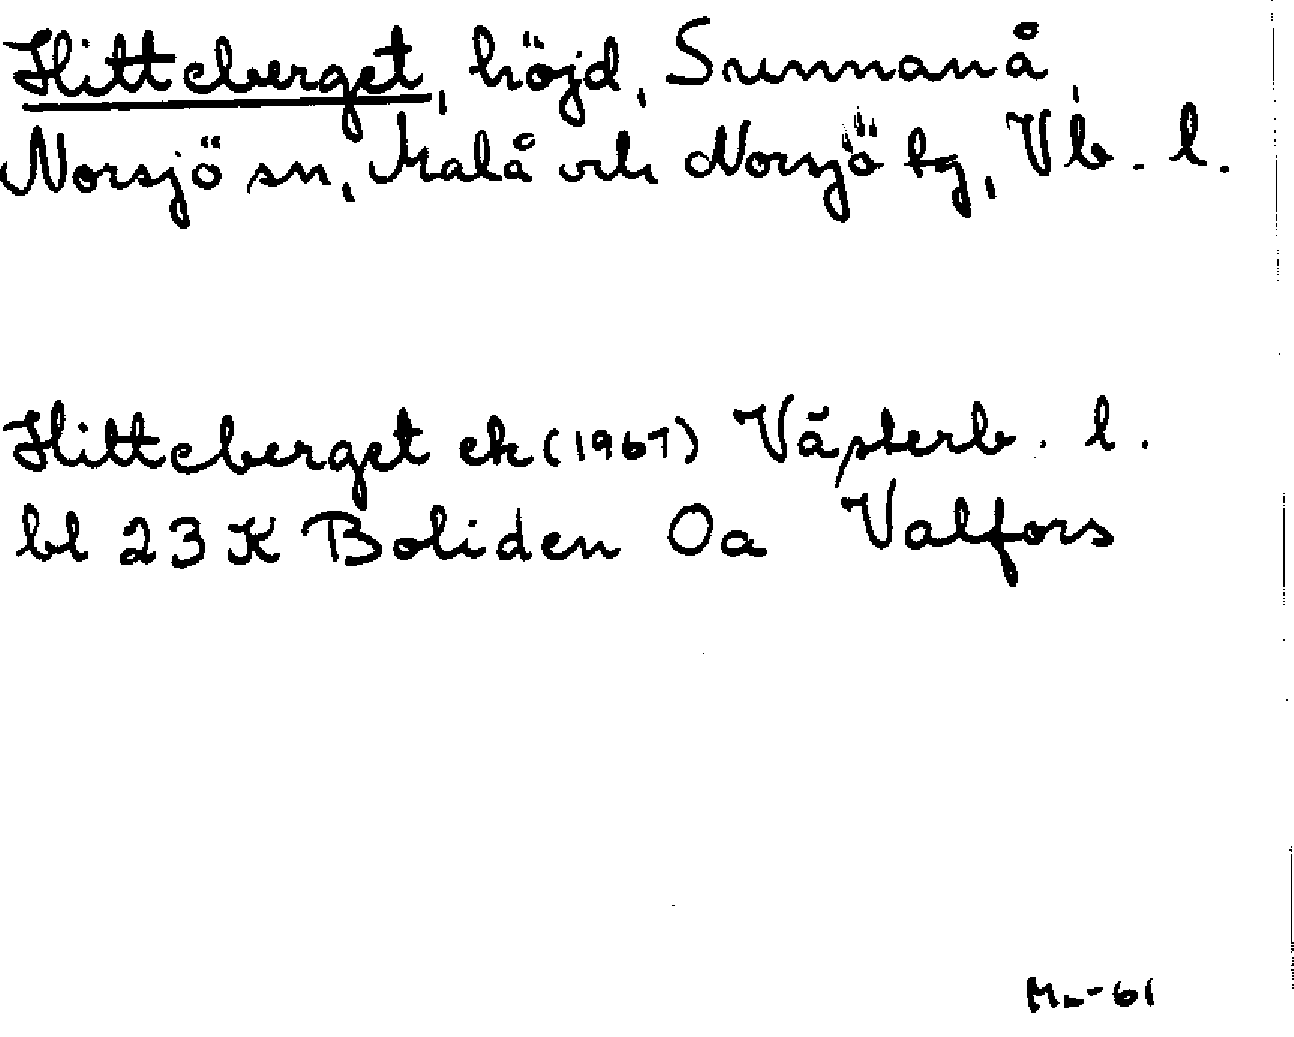 Hitteberget, höjd, Sunnanå,
Norsjö sn, Malå och Norsjö tg, Vb. l.
Hitteberget ek (1967) Västerb. l.
bl 23 K Boliden 0a Valfors